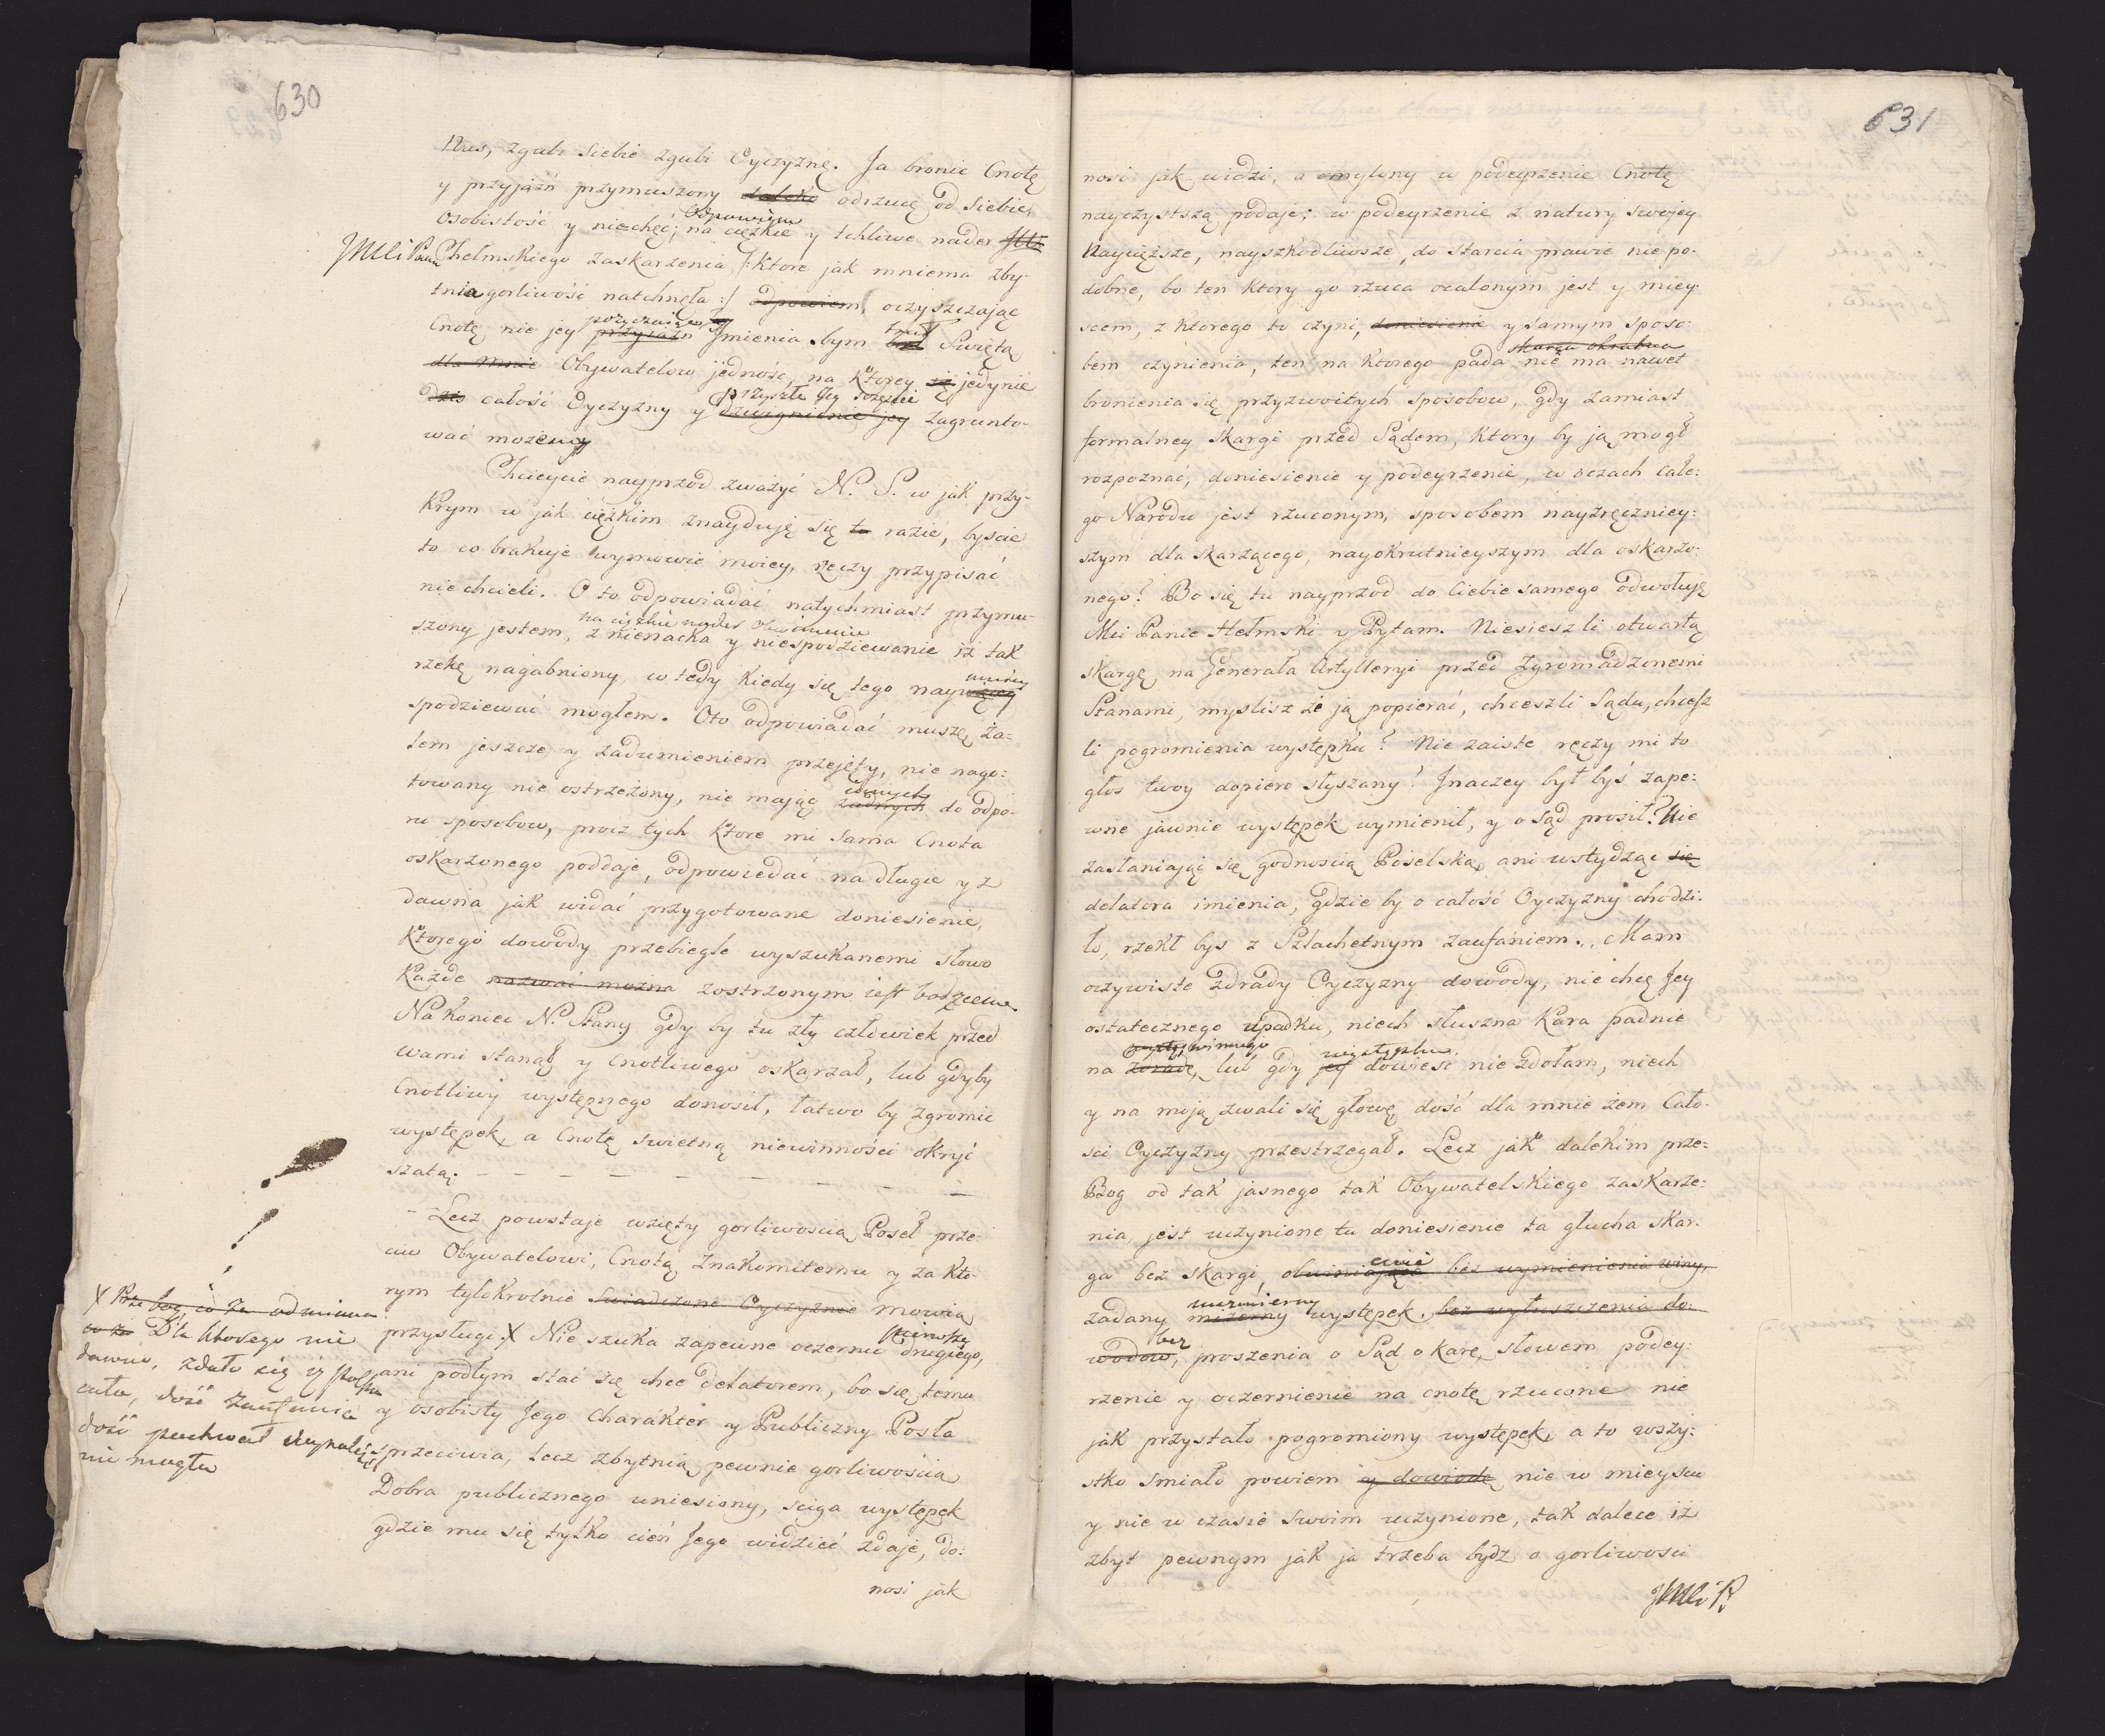 630
Nas, zgubi siebie zgubi Oyczyznę. Ja bronić Cnotę
y przyjaźń przymuszony daleko odrzucę od siebie,
osobistość y niechęć; na ciężkie y tchliwe nader
odpowiem
JMCi Pana Chełmskiego zaskarżenia /: Ktore jak mniema zby-
tnia gorliwość natchnęła :/ odpowiem, oczyszczając
Cnotę nie jey przyjaźń Jmienia bym Swiętą
dla mnie Obywatelow jedność, na Ktorey się jedynie
przyszłe Jey
całość Oyczyzny y dzwignienie jey zagrunto-
wać możemy
Chcieycie nayprzod zważyć N. S. w jak przy-
krym w jak ciężkim znayduję się to razie, byscie
to co brakuje wymowie moiey, rzeczy przypisać
niechcieli. O to odpowiadać natychmiast przymu-
na ciężkie nader obwinienie
szony jestem, znienacka y niespodziewanie iż tak
rzekę nagabniony, w tedy kiedy się tego naywięcey
mniey
spodziewać mogłem. Oto odpowiadać muszę, ża-
lem jeszcze y zadumieniem przejęty, nie nago:
towany nie ostrzeżony, nie mając żadnych do odpo-
innych
ru sposobow, procz tych Ktore mi sama Cnota
oskarżonego poddaje, odpowiedać na długie y z
dawna jak widać przygotowane doniesienie,
Ktorego dowody przebiegle wyszukanemi słowo
Każde nazwać można zostrzonym iest bodzcem
Nakoniec N. Stany gdy by tu zły człowiek przed
wami stanął y Cnotliwego oskarżał, lub gdyby
Cnotliwy występnego donosił, łatwo by zgromić
występek, a Cnotę swietną niewinności okryć
szatą. – – – – – – – – –
– Lecz powstaje wzięty gorliwoscią Poseł prze-
ciw Obywatelowi, Cnotą znakomitemu y za Kto-
rym tylokrotnie swiadczone Oyczyznie mowią
przysługi. X Nie szuka zapewne oczernić drugiego,
ani podłym stać się chce delatorem, bo się temu
y osobisty Jego Charakter y Publiczny Posła
sprzeciwia, lecz zbytnią pewnie gorliwoscią
Dobra publicznego uniesiony, sciga występek
gdzie mu się tylko cień Jego widzieć zdaje, do:
nosi jak
X
Dla Ktorego nie
dawno, zdało się iż Polska
cała, dość zaufania
dość pochwał wynaleść
nie mogła
631
nosi jak widzi, a omylony w podeyrzenie Cnotę
nayczystszą podaje; w podeyrzenie z natury swojey
nayciższe, nayszkodliwsze, do starcia prawie nie po-
dobne, bo ten Ktory go rzuca ocalonym jest y miey-
scem, z Ktorego to czyni, doniesienie y samym sposo:
skarga okrutna
bem czynienia, ten na Ktorego pada nie ma nawet
bronienia się przyzwoitych sposobow, gdy zamiast
formalney Skargi przed Sądem, Ktory by ją mogł
rozpoznać, doniesienie y podeyrzenie, w oczach całe:
go Narodu jest rzuconym, sposobem nayzręczniey:
szym dla skarżącego, nayokrutnieyszym dla oskarżo:
nego? Bo się tu nayprzod do Ciebie samego odwołuję
Mci Panie Hełmski y Pytam. Niesieszli otwartą
skargę na Generała Artylleryi przed Zgromadzonemi
Stanami, myslisz że ją popierać, chceszli Sądu, chcesz
li pogromienia występku? Nie zaiste ręczy mi to
głos twoy dopiero słyszany! Jnaczey był byś zape:
wne jawnie występek wymienił, y o Sąd prosił? Nie
zasłaniając się godnoscią Poselską, ani wstydząc się
delatora imienia, gdzie by o całość Oyczyzny chodzi.
ło, rzekł bys z Szlachetnym zaufaniem. Mam
oczywiste zdrady Oyczyzny dowody, nie chcę Jey
ostatecznego upadku, niech słuszna Kara padnie
winnego występku
na zdradę, lub gdy jey dowiesć nie zdołam, niech
y na moją zwali się głowę dość dla mnie żem Cało-
sci Oyczyzny przestrzegał. Lecz jak dalekim prze-
Bog od tak jasnego tak Obywatelskiego zaskarże:
nia, jest uczynione tu doniesienie ta głucha skar-
ga bez skargi, obwiniające bez wymienienia winy,
niezmierny
zadany mizerny występek. bez wyłuszczenia do:
bez
wodow, proszenia o Sąd o karę, słowem podey:
rzenie y oczernienie na cnotę rzucone nie
jak przystało pogromiony występek, a to wszy:
stko smiało powiem y dowiodę nie w mieyscu
y nie w czasie swoim uczynione, tak dalece iż
zbyt pewnym jak ja trzeba bydz o gorliwosci
JMCi P.